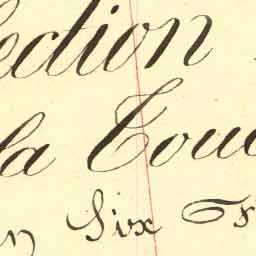 ection
la Touc
Six F